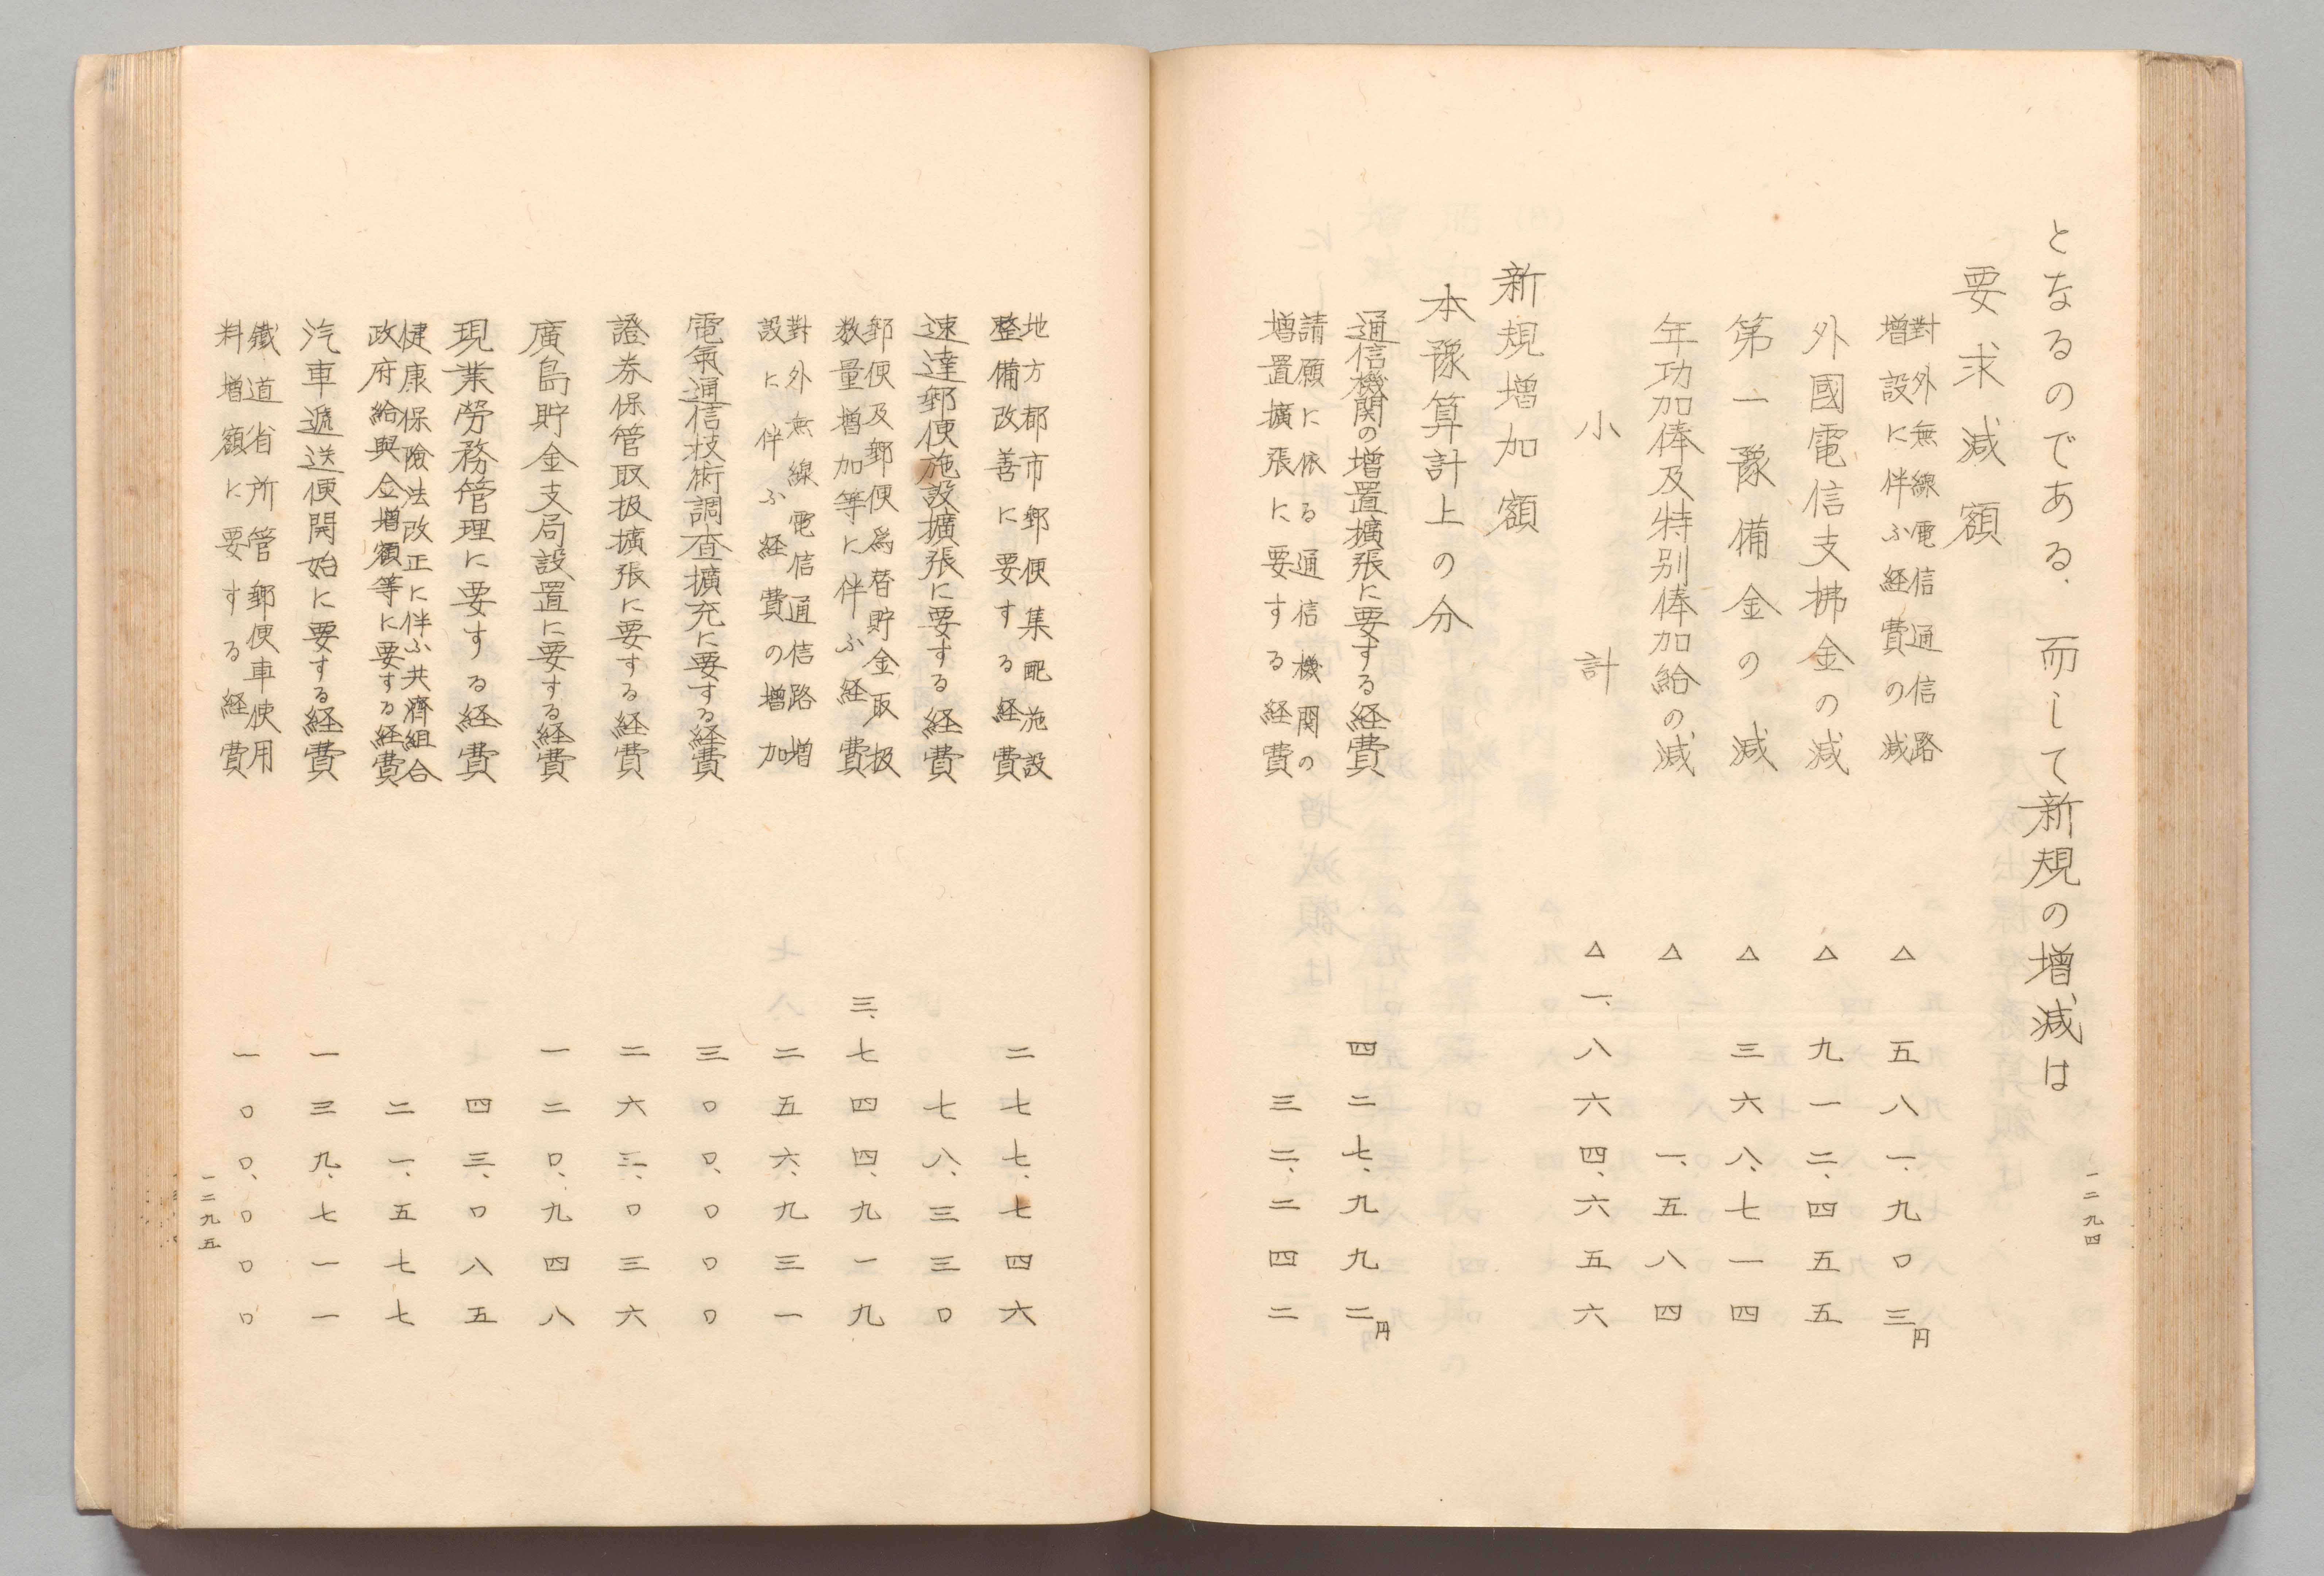 となるのである．而して新規の増減は
要求減額
對外無線電信通信路
増設に伴ふ経費の減
△五八一、九〇三円
外國電信支拂金の減
△九一二、四五五
第一豫備金の減
△三六八、七一四
年功加俸及特別俸加給の減
△一、五八四
小計
△一、八六四、六五六
新規増加額
本豫算計上の分
通信機関の増置擴張に要する経費
四二七、九九二円
請願に依る通信機関の
増置擴張に要する経費
三二、二四二
一二九四
地方都市郵便集配施設
整備改善に要する経費
二七七、七四六
速達郵便施設擴張に要する経費
七八、三三〇
郵便及郵便爲替貯金取扱
数量増加等に伴ふ経費
三、七四四、九一九
對外無線電信通信路増
設に伴ふ経費の増加
二五六、九三一
電氣通信技術調査擴充に要する経費
三〇〇、〇〇〇
證券保管取扱擴張に要する経費
二六三、〇三六
廣島貯金支局設置に要する経費
一二〇、九四八
現業勞務管理に要する経費
四三、〇八五
健康保險法改正に伴ふ共濟組合
政府給與金増額等に要する経費
二一、五七七
汽車遞送便開始に要する経費
一三九、七一一
鐵道省所管郵便車使用
料増額に要する経費
一〇〇、〇〇〇
一二九五